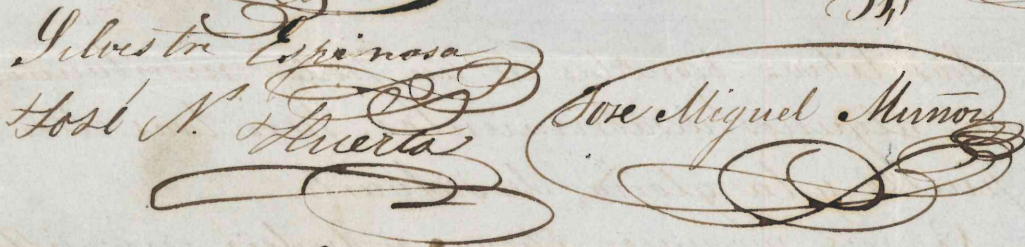 Silvestre Espinosa
José N. Huerta
Jose Miguel Muñoz